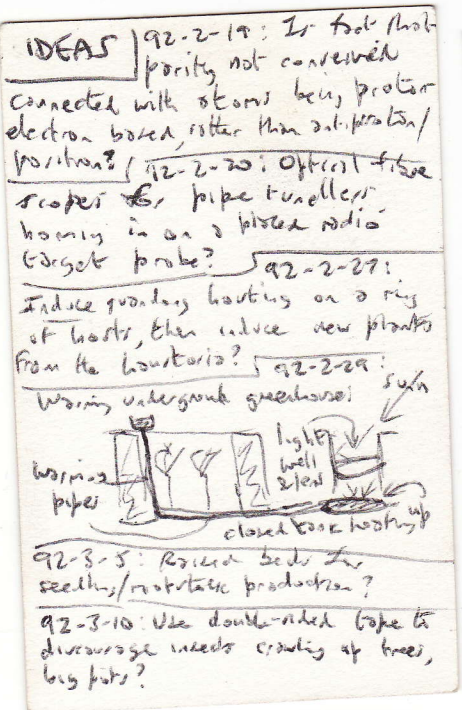 IDEAS
92-2-19: Is fact that
parity not conserved
connected with atoms being proton
electron based, rather than antiproton/
positron?
92-2-20: Optical fibre
scopes for pipe tunellers
homing in on a placed radio
target probe?
92-2-27:
Induce quandong hosting on a ring
of hosts, then induce new plants
from the haustoria?
92-2-29:
Warming underground greenhouse:
Sun
light
well
& lens
Warming
pipes
closed tank heating up
92-3-5: Raised beds for
seedling/rootstock production?
92-3-10: Use double-sided tape to
discourage insects crawling up trees,
big pots?